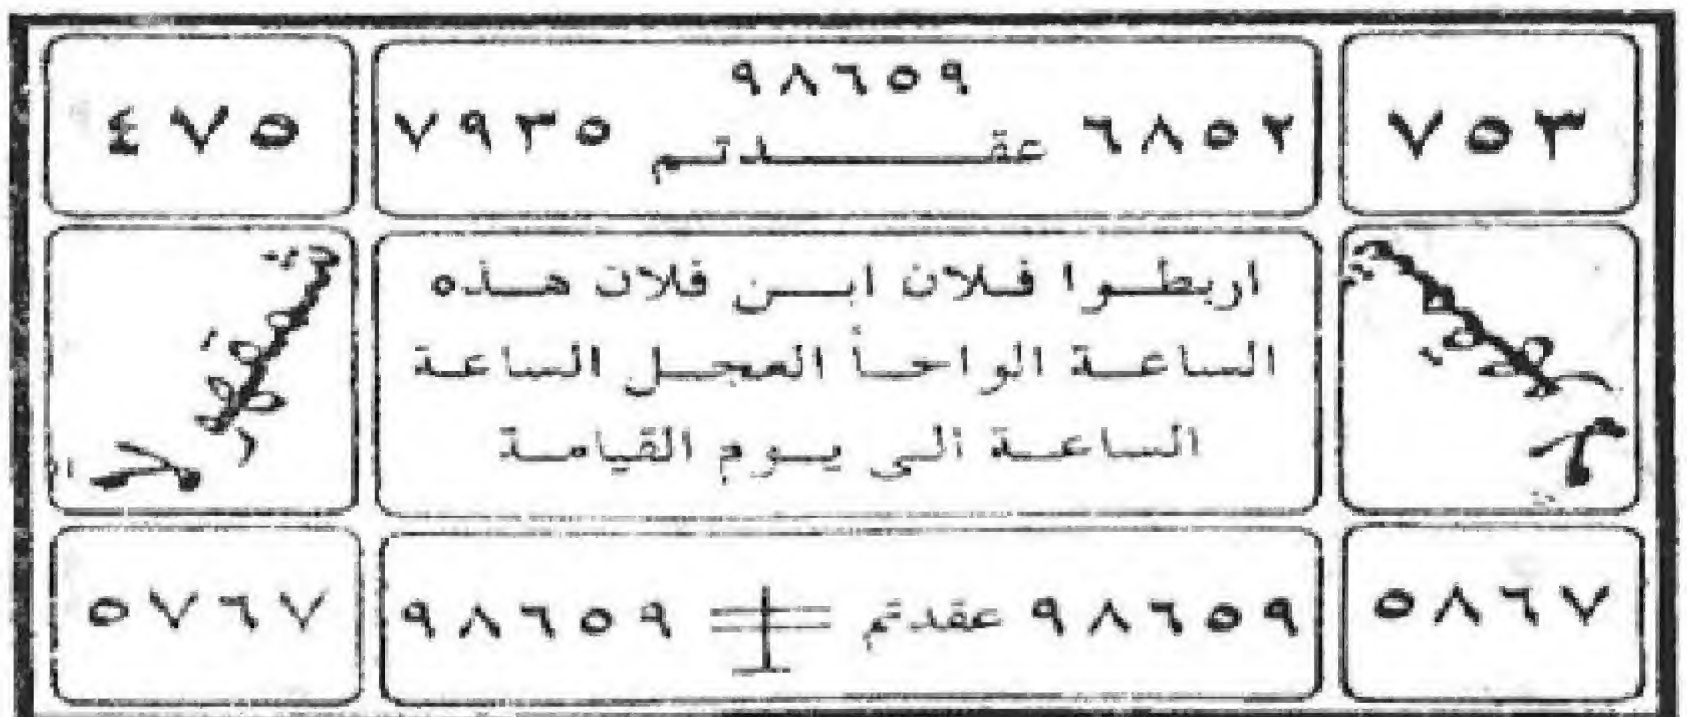 ٩٨٦٥٩
٧٥٣
٦٨٥٢ عقدتم ٧٩٣٥
٤٧٥
اربطوا فلان ابن فلان هذه
الساعة الواحأ العجل الساعة
الساعة الى يوم القيامة
٥٨٦٧
٩٨٦٥٩ عقدتم ٩٨٦٥٩
٥٧٦٧